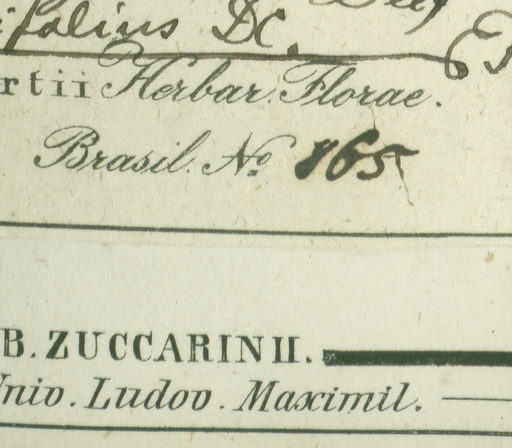 ifolius DC.
rtii Herbar. Florae.
Brasil. No. 865
B. ZUCCARINII.
Univ. Ludov. Maximil.